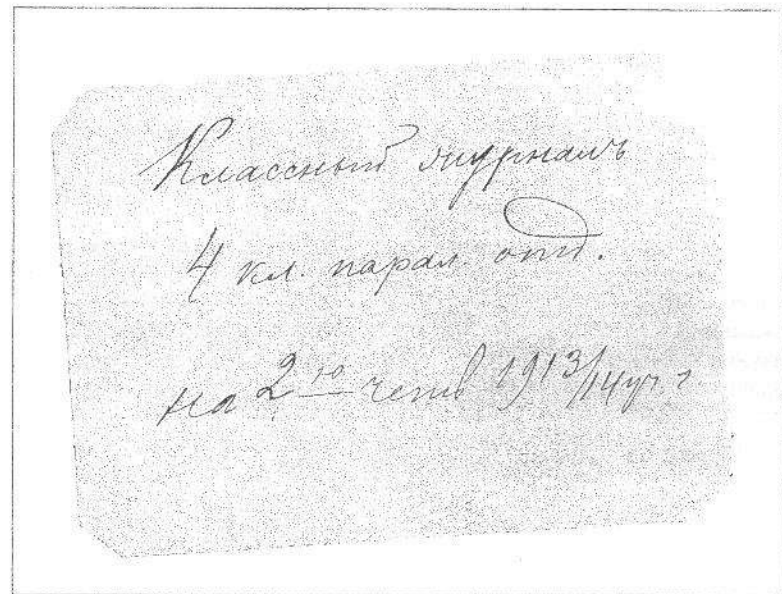 Классный журналъ
4 кл. парал. отд.
на 2ую четв 1913/14 уч. г